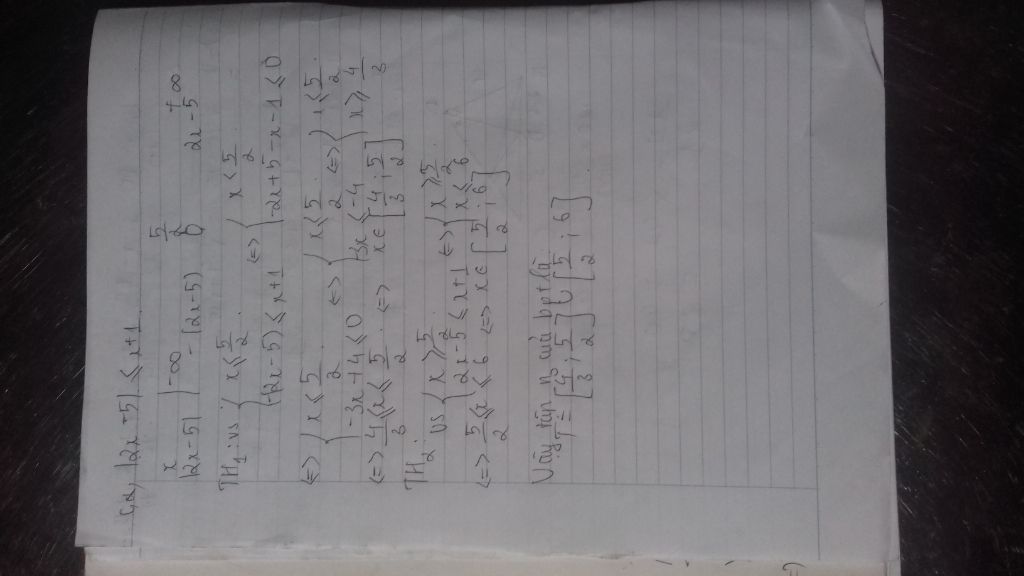 c, a, |2x - 5| ≤ x + 1
x | -∞ 5/2 +∞
|2x - 5| | -(2x - 5) 0 2x - 5
TH1: vs { x ≤ 5/2 ; -(2x - 5) ≤ x + 1 <=> { x ≤ 5/2 ; -2x + 5 - x - 1 ≤ 0
<=> { x ≤ 5/2 ; -3x + 4 ≤ 0 <=> { x ≤ 5/2 ; -3x ≤ -4 <=> { x ≤ 5/2 ; x ≥ 4/3
<=> 4/3 ≤ x ≤ 5/2 <=> x ∈ [4/3 ; 5/2]
TH2: vs { x ≥ 5/2 ; 2x - 5 ≤ x + 1 <=> { x ≥ 5/2 ; x ≤ 6
<=> 5/2 ≤ x ≤ 6 <=> x ∈ [5/2 ; 6]
Vậy tập n0 của bpt là
T = [4/3 ; 5/2] ∪ [5/2 ; 6]